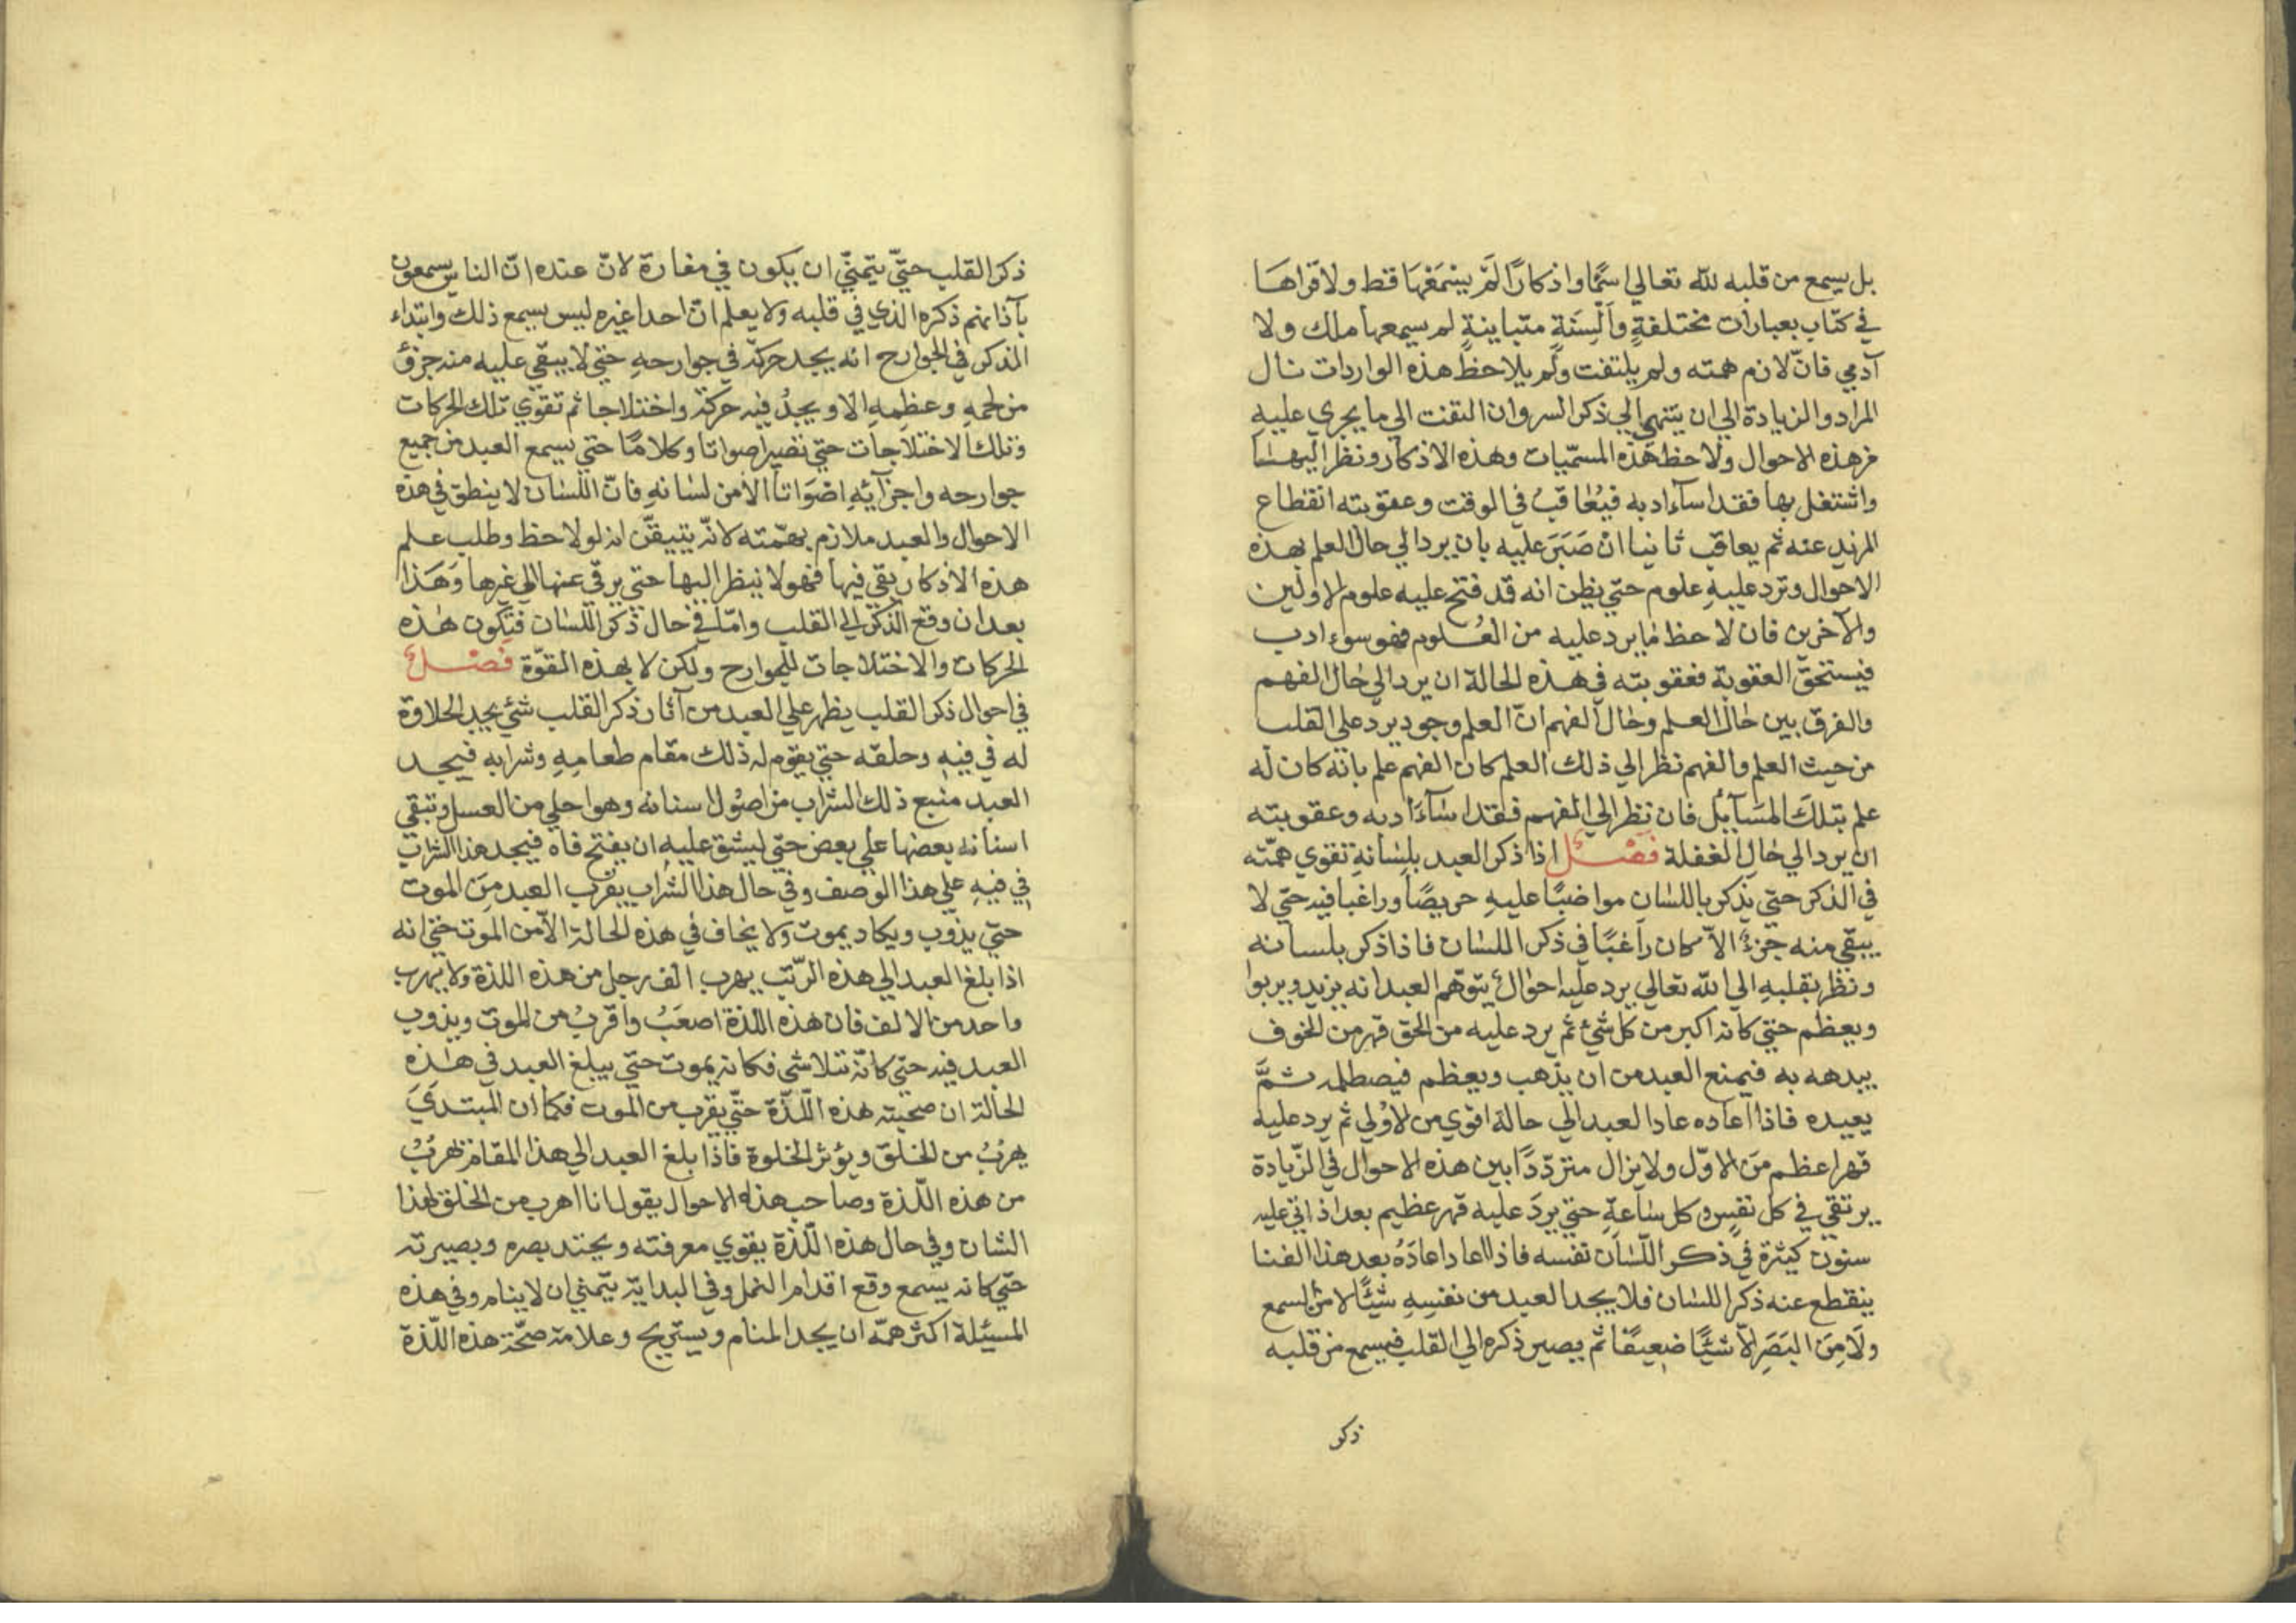 بل يسمع من قلبه لله تعالي اسمًا واذكارًا لَمْ يَسْمَعْهَا قط ولا قراهَا
في كتاب بعبارات مختلفةٍ وَاَلْسِنَةٍ متباينةٍ لم يسمعها ملك ولا
آدمي فانّ لازم همته ولم يلتفت ولم يلاحظ هذه الواردات نال
المراد والزيادة الي ان ينتهي الي ذكر السر وان التفت الي ما يجري عليهِ
من هذه الاحوال ولاحظ هَذه المسمّيات وهذه الاذكار ونظر اليهَا
واشتغل بها فقد اسآء ادبه فيُعَاقبُ في الوقت وعقوبته انقطاع
المزيد عنه ثم يعاقب ثانيا انْ صَبَرَ عليه بان يرد الي حال العلم بهذه
الاحوال وترد عليهِ علوم حتي يظن انه قد فتح عليه علوم الاولين
والآخرين فان لاحظ مَا يرد عليه من العُلوم فهو سوء ادب
فيستحقّ العقوبة فعقوبته في هَذه الحالة ان يرد الي حَال الفهم
والفرق بين حَال العلم وحَال الفهم انّ العلم وجود يرد علي القلب
من حيث العلم والفهم نظر الي ذلك العلم كان الفهم علم بانّه كان له
علم بتلكَ المسَآئل فان نظر الي الفهم فقد اسَآءَ ادبه وعقوبته
ان يرد الي حَال الغفلة فَصْلٌ اذا ذكر العبد بلِسَانهِ تقوي همّته
في الذكر حتي يذكر باللسَان مواضبًا عليهِ حريصًا وراغبا فيه حتّي لا
يبقي منه جزءٌ الاّ كان راغبًا في ذكر اللسَان فاذا ذكر بلسانه
ونظر بقلبهِ الي الله تعالي يرد عليه احوَالٌ يتوّهم العبد انه يزيد ويربوا
ويعظم حتي كانه اكبر من كل شئ ثم يرد عليه من الحق قهر من الخوف
يبدهه به فيمنع العبد من ان يذهب ويعظم فيصطلمه ثمَّ
يعيده فاذا اعاده عاد العبد الي حالة اقوي من الاوُلي ثم يرد عليه
قهر اعظم منَ الاوّل ولا يزال متردّدًا بين هذه الاحوال في الزّيادة
يرتقي في كل نفسٍ وكل سَاعةٍ حتي يردَ عليه قهر عظيم بعد اذ اتي عليه
سنون كثيرة في ذكر اللّسَان نفسه فاذا اعاد اعادَهُ بعد هذا الفنا
ينقطع عنه ذكر اللسَان فلا يجد العبد من نفسِهِ شيْئًا لا من السمع
ولَا مِنَ البَصَرِ الّا شيْئًا ضعيفًا ثم يصير ذكره الي القلب فيسمع من قلبه
ذكر
ذكر القلب حتيّ يتمنيّ ان يكون في مغارة لانّ عنده انّ الناس يسمعون
بآذانهم ذكره الذي في قلبه ولا يعلم انّ احدا غيره ليس يسمع ذلك وابتداء
الذكر في الجوارح انه يجد حركة في جوارحهِ حتي لا يبقي عليه منه جزؤ
من لحمهِ وعظمهِ الا ويجدُ فيه حركة واختلاجا ثم تقوّي تلك الحركات
وتلك الاختلاجات حتي تصير اصواتا وكلامًا حتي يسمع العبد من جميع
جوارحه واجزآئهِ اصَوَاتا الّا من لسَانهِ فانّ اللسَان لا ينطق في هذه
الاحوال والعبد ملازم بهمّته لانّه يتيقّن انه لو لاحظ وطلب علم
هذه الاذكار بقي فيها فهو لا ينظر اليها حتي يرقي عنها الي غيرها وَهَذا
بعد ان وقع الذكر الي القلب وامّا في حال ذكر اللسَان فتكون هَذه
الحركات والاختلاجات للجوارح ولكن لا بهذه القوّة فَصْلٌ
في احوال ذكر القلب يظهر علي العبد من آثار ذكر القلب شئ يجد الحلاوة
له في فيهِ وحلقه حتي يقوم له ذلك مقام طعامهِ وشرابه فيجد
العبد منبع ذلك الشراب من اصُول اسنانه وهو احلي من العسل وتبقي
اسنانه بعضها علي بعض حتي ليشق عليهِ ان يفتح فاه فيجد هذا الشراب
في فيهِ علي هذا الوصف وفي حال هذا الشراب يقرب العبد مِنَ الموت
حتيّ يذوب ويكاد يموت ولا يخاف في هذه الحالة الّا من الموت حتي انه
اذا بلغ العبد الي هذه الرّتب يهرب الف رجل من هذه اللذة ولا يهرب
واحد من الالف فان هذه اللّذة اصعَبُ واقربُ من الموت ويذوب
العبد فيه حتيّ كانّه تلاشي فكانه يموت حتيّ يبلغ العبد في هَذه
الحالة ان صحبته هذه اللّذة حتّي يقرب من الموت فكما ان المبتدئَ
يهربُ من الخلق ويؤثر الخلوة فاذا بلغ العبد الي هذا المقام يهربُ
من هذه اللّذة وصاحب هذه الاحوال يقول انا اهرب من الخلق لهذا
الشان وفي حال هذه اللّذة يقوي معرفته ويحتد بصره وبصيرته
حتّي كانه يسمع وقع اقدام النمل وفي البداية يتمنّي ان لا ينام وفي هذه
المسئلة اكثر همّه ان يجد المنام ويستريح وعلامة صحّة هذه اللّذة